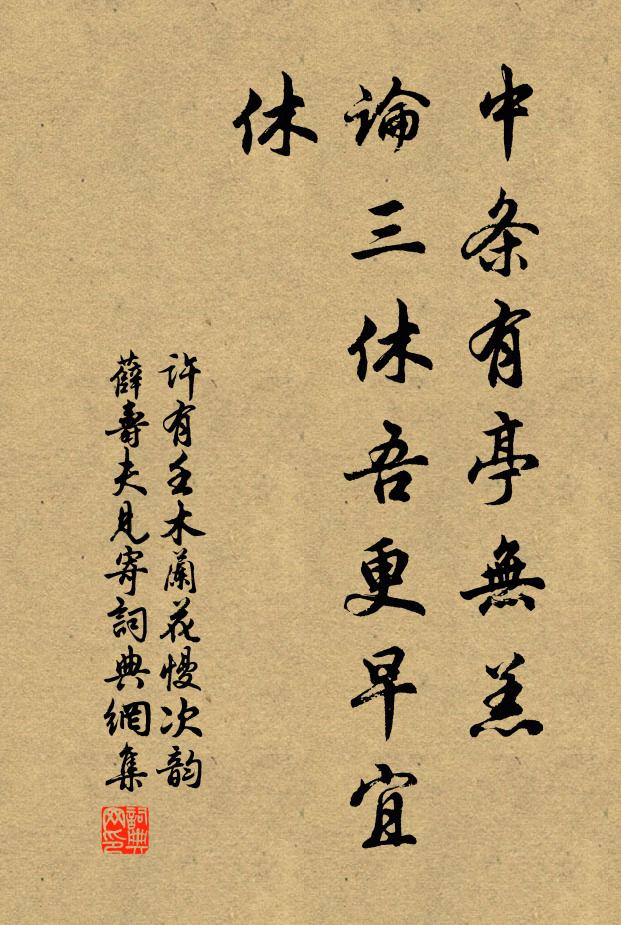 中条有亭無恙
論三休吾更早宜
休
許有壬木蘭花慢次韵
薛壽夫見寄詞典網集
詞典网印